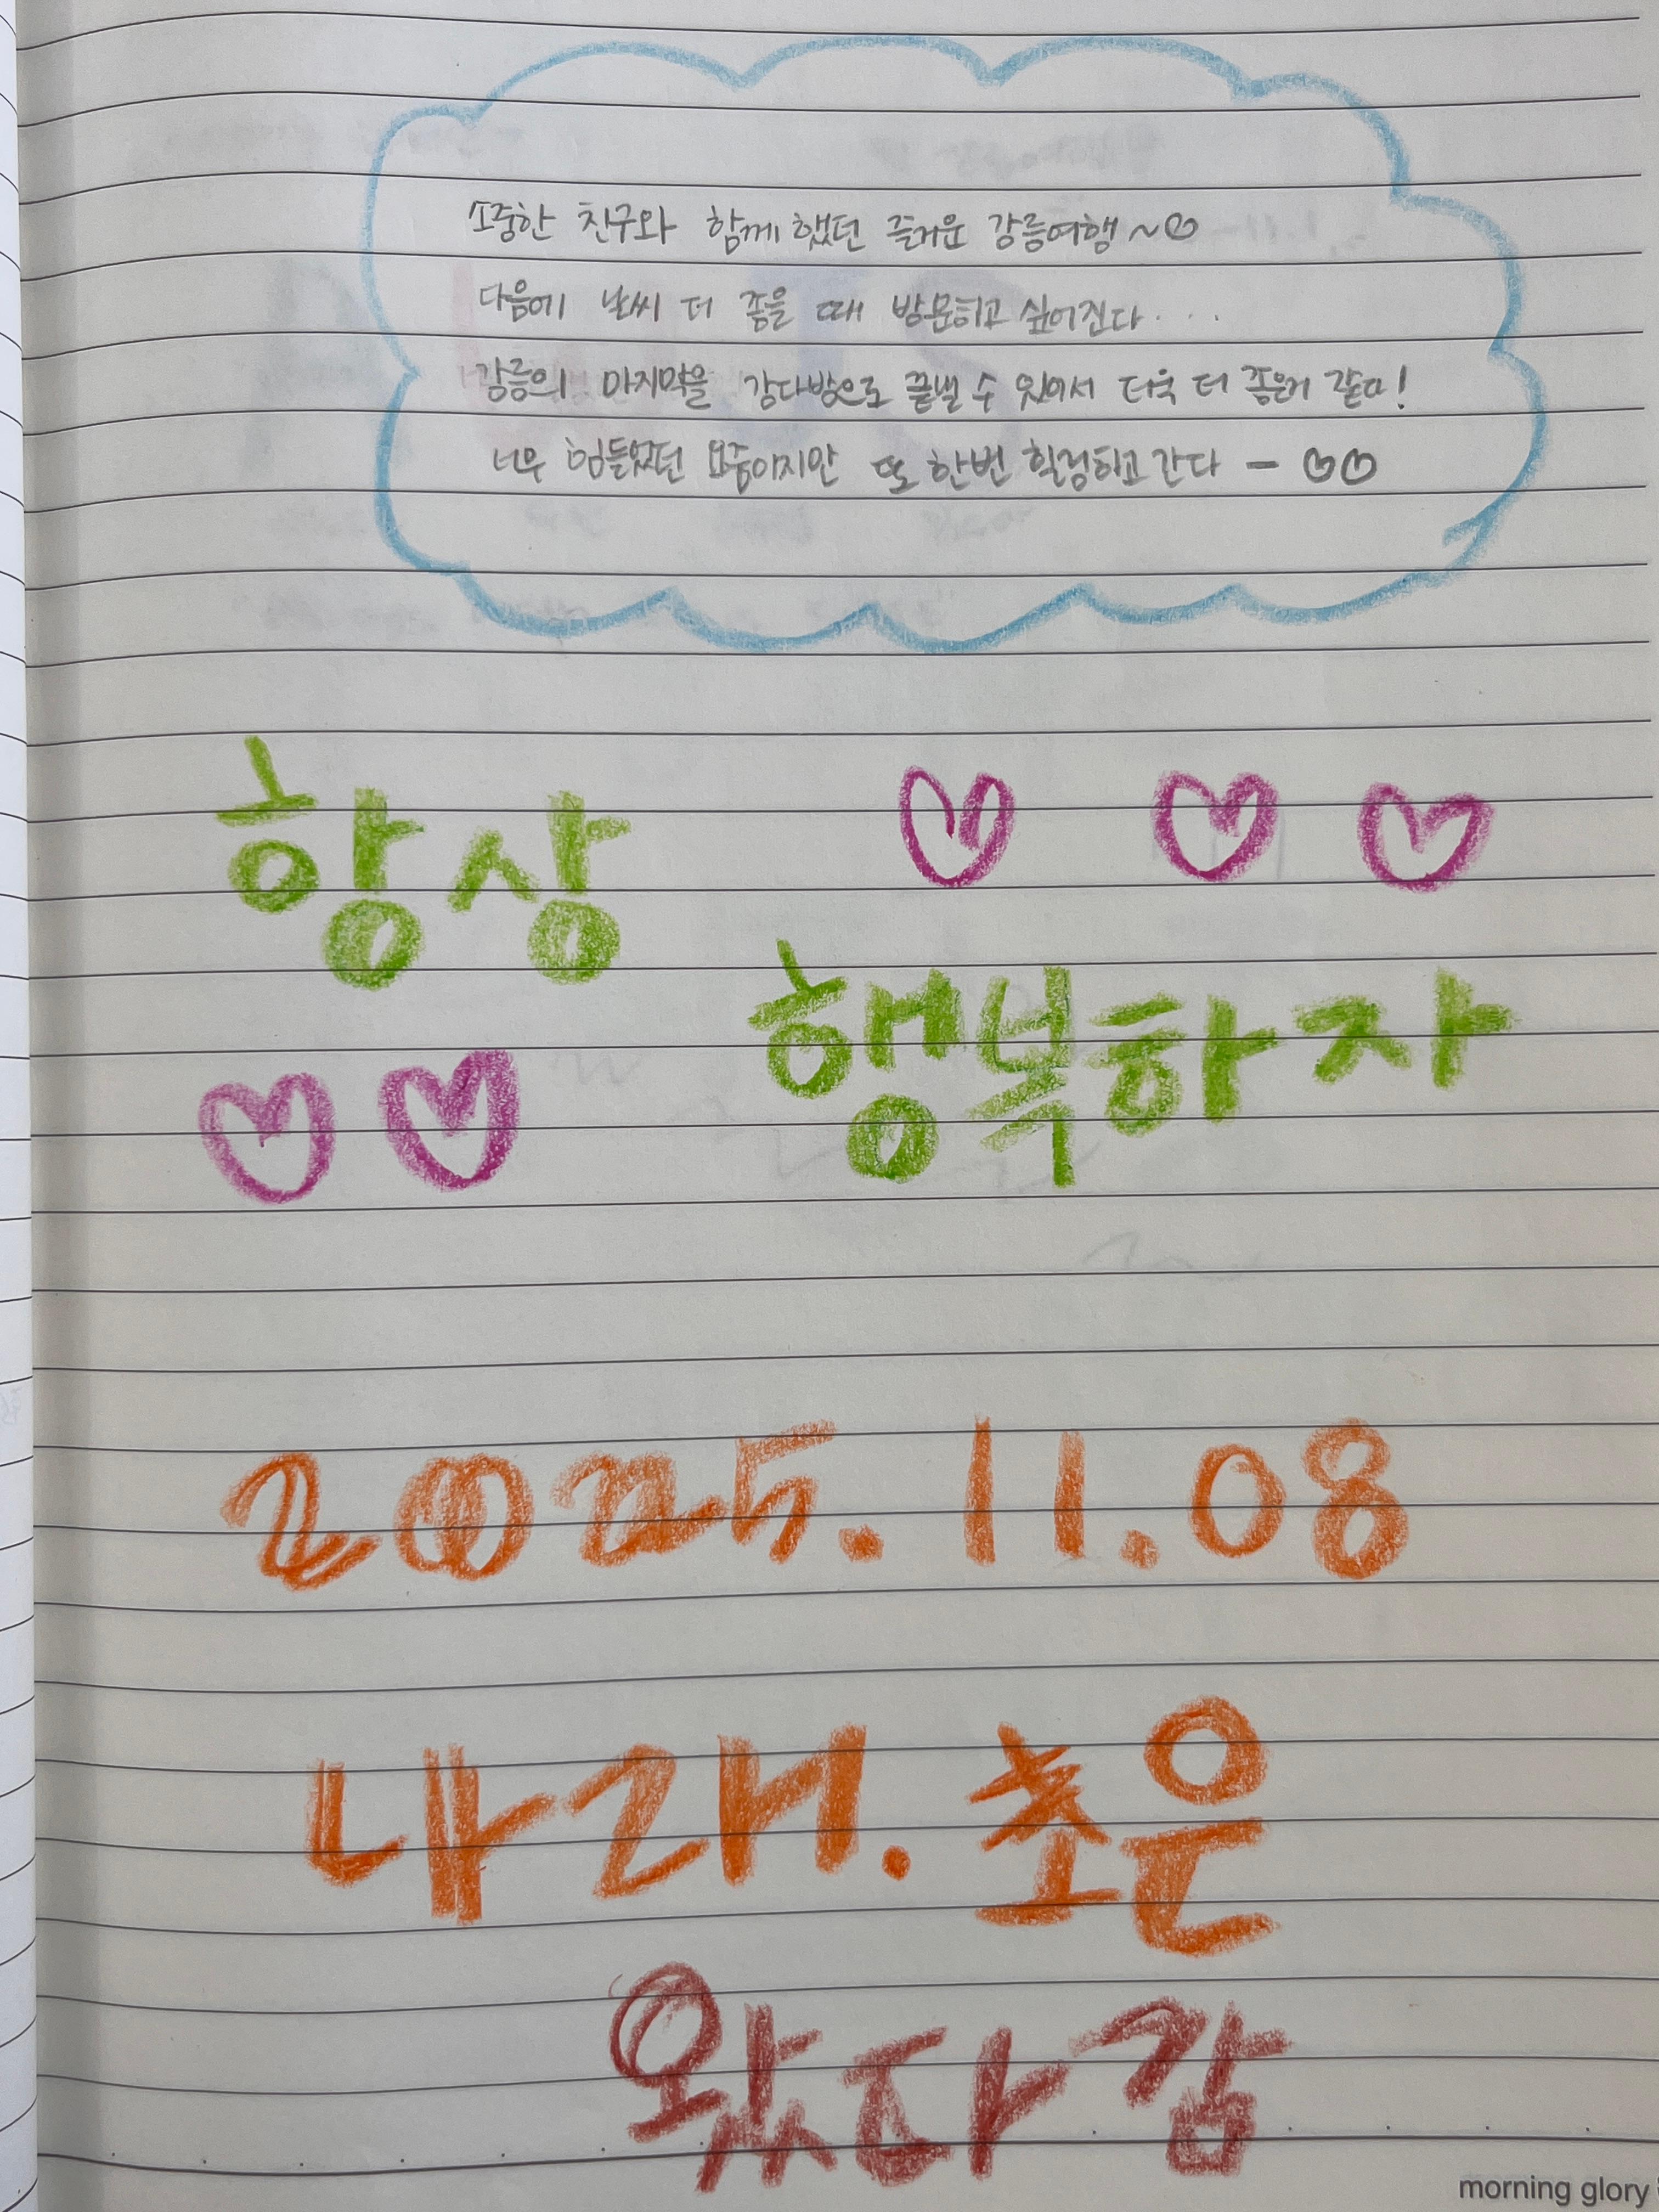 소중한 친구와 함께 했던 즐거운 강릉여행~♡
다음에 날씨 더 좋을 때 방문하고 싶어진다....
강릉의 마지막을 강다방으로 끝낼 수 있어서 더욱 더 좋은거 같다!
너무 힘들었던 요즘이지만 또 한번 힐링하고 간다 - ♡♡
항상 ♡ ♡ ♡
♡♡ 행복하자
2025.11.08
나래.초은
왔다감
morning glory